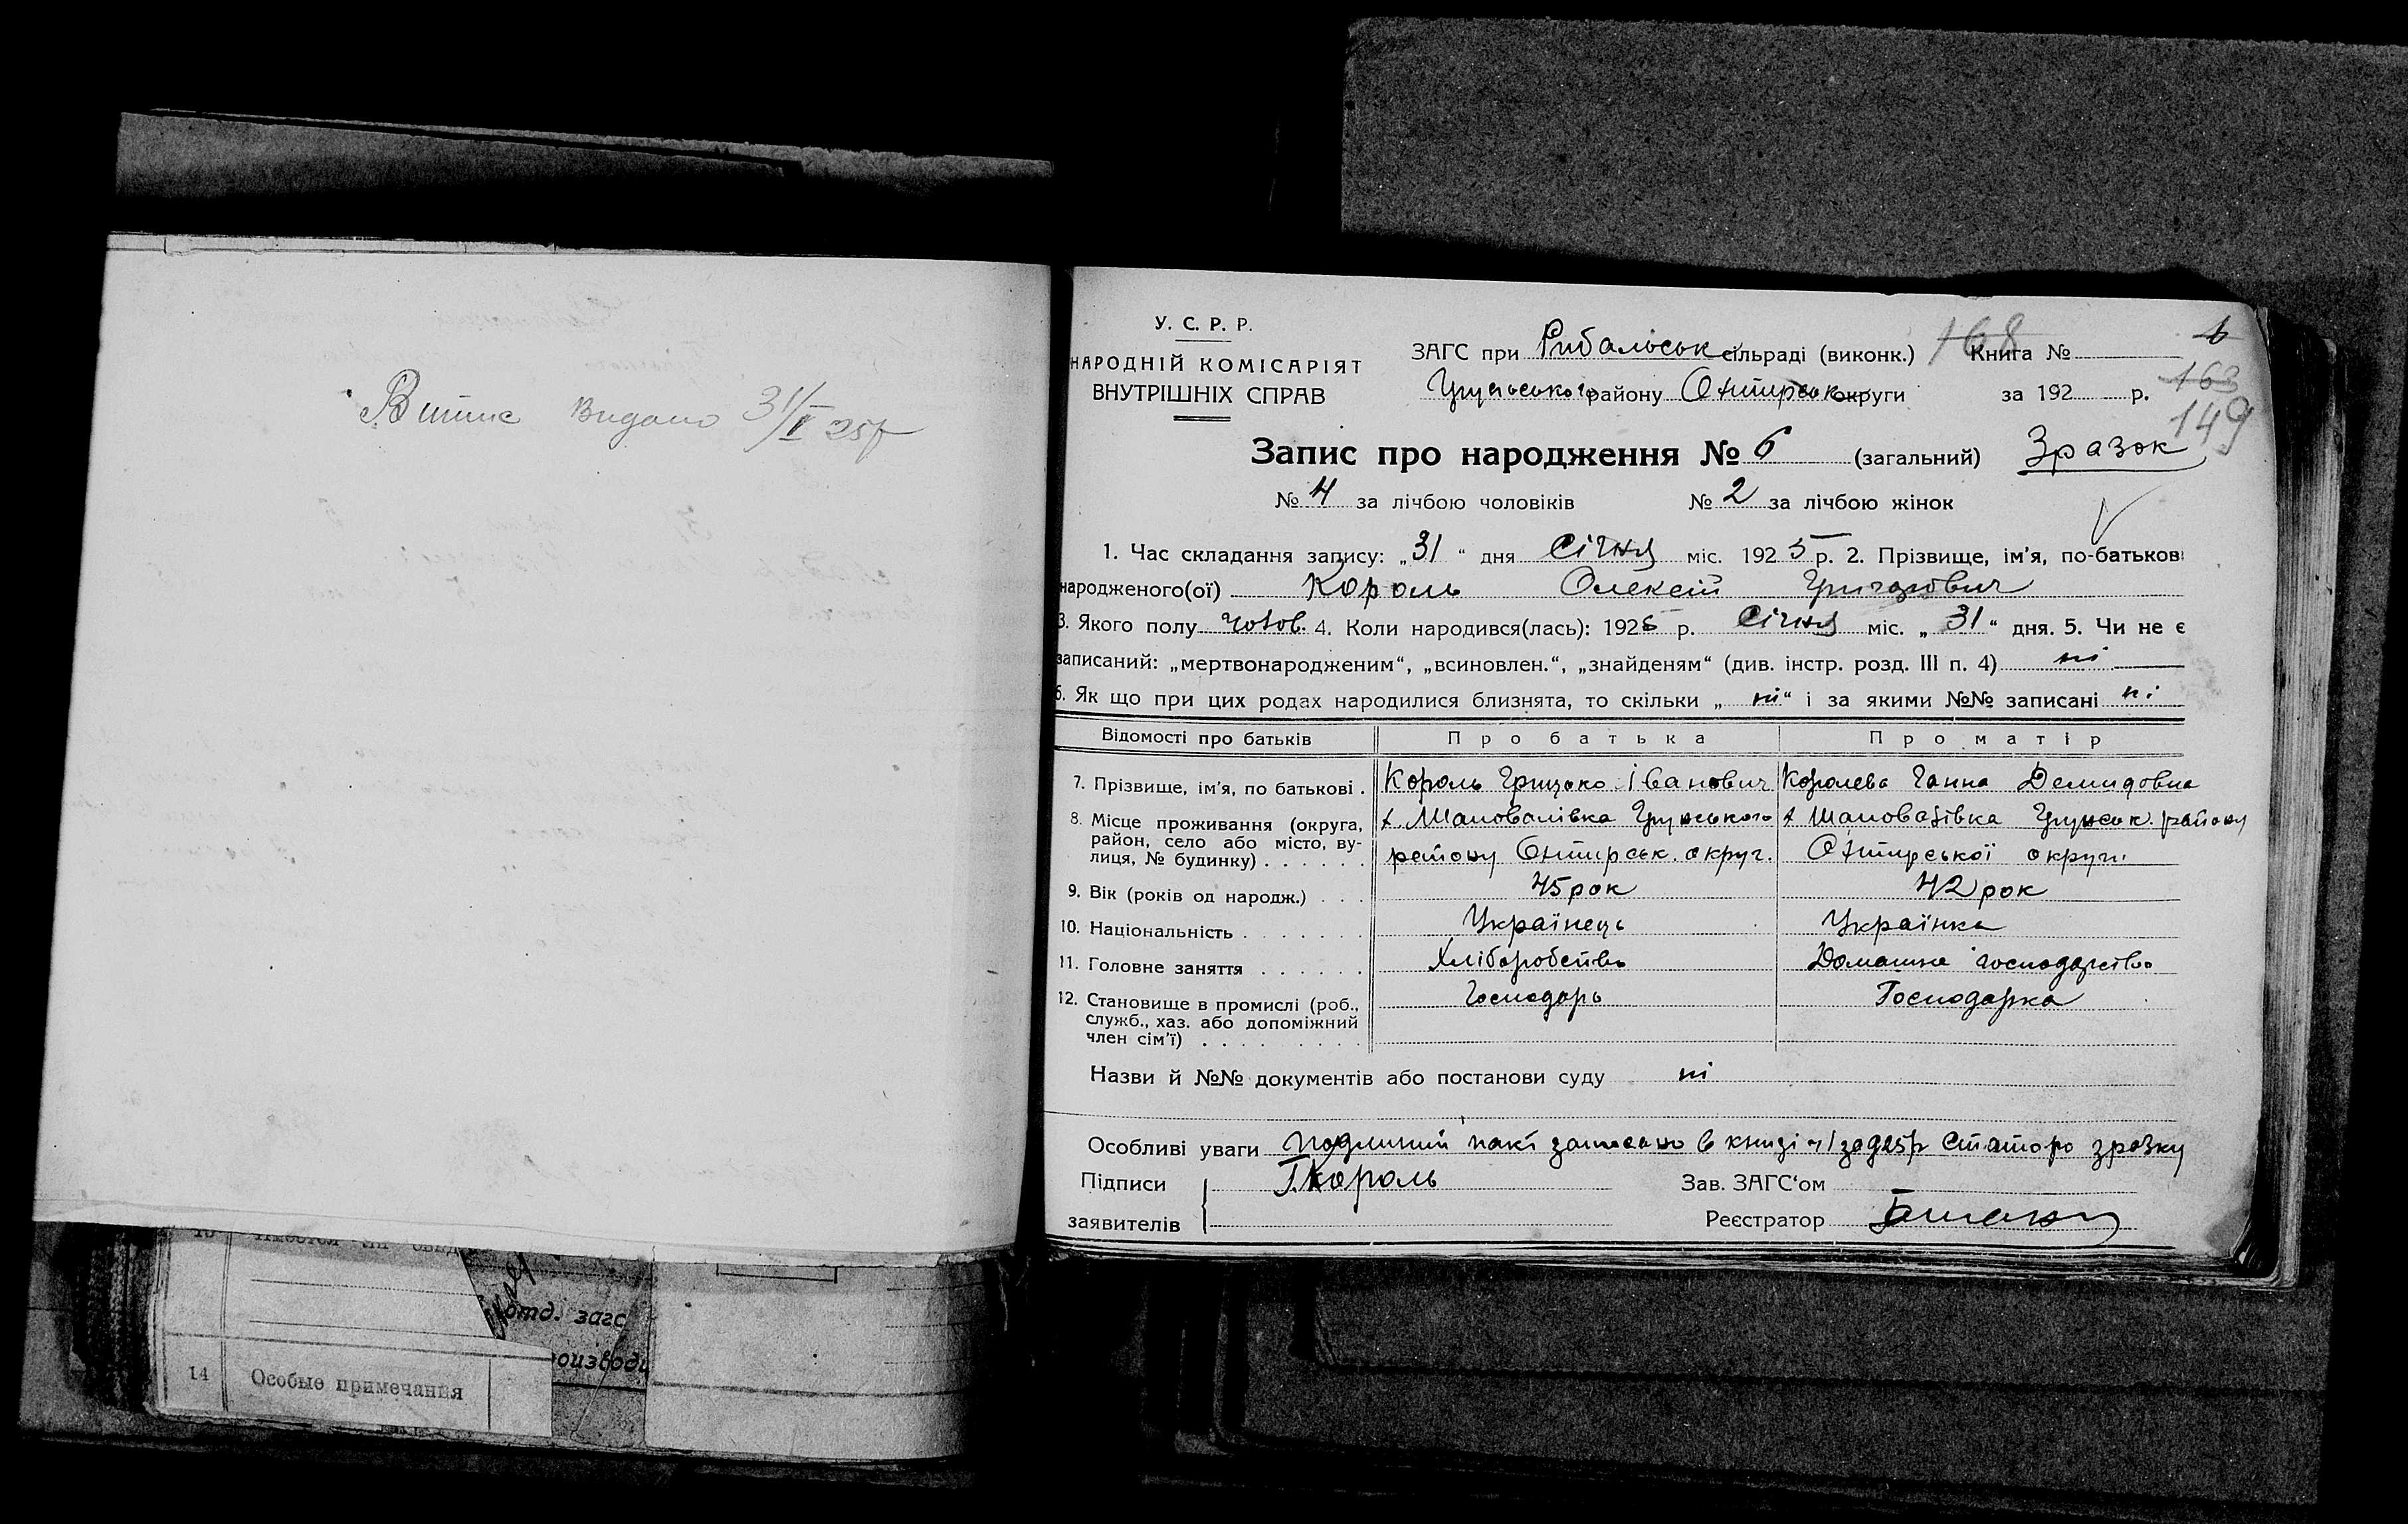 Витис видано 31/I 25р
У. С. Р. Р.
НАРОДНІЙ КОМІСАРІЯТ
ВНУТРІШНІХ СПРАВ
ЗАГС при Рибальськ сільраді (виконк.) 168 Книга № 6
Грунського району Охтирськ округи за 192 р. 163
149
Запис про народження № 6 (загальний) Зразок
№ 4 за лічбою чоловіків № 2 за лічбою жінок
1. Час складання запису: „31“ дня Січня міс. 1925 р. 2. Прізвище, ім'я, по-батькові
народженого(ої) Король Олексій Григорович
3. Якого полу чолов. 4. Коли народився(лась): 1925 р. Січня міс. „31“ дня. 5. Чи не є
записаний: „мертвонародженим“, „всиновлен.“, „знайденям“ (див. інстр. розд. III п. 4) ні
6. Як що при цих родах народилися близнята, то скільки „ні“ і за якими №№ записані ні
Відомості про батьків Про батька Про матір
7. Прізвище, ім'я, по батькові . Король Грицько Іванович Королева Ганна Демидовна
8. Місце проживання (округа, район, село або місто, вулиця, № будинку) . . . . . .
х. Шаповалівка Грунського
району Охтирськ. округ.
х Шаповалівка Грунськ. району
Охтирської округи
9. Вік (років од народж.) . . . 45 рок 42 рок
10. Національність . . . . . . . Українець Українка
11. Головне заняття . . . . . . Хліборобство Домашне господарство
12. Становище в промислі (роб., Господарь Господарка
служб., хаз. або допоміжний
член сім'ї) . . . . . . . .
Назви й №№ документів або постанови суду ні
Особливі уваги записано в книзі старого зразку
Підписи Г.Король Зав. ЗАГС'ом
заявителів Реєстратор
отд. загс
14 Особые примечания